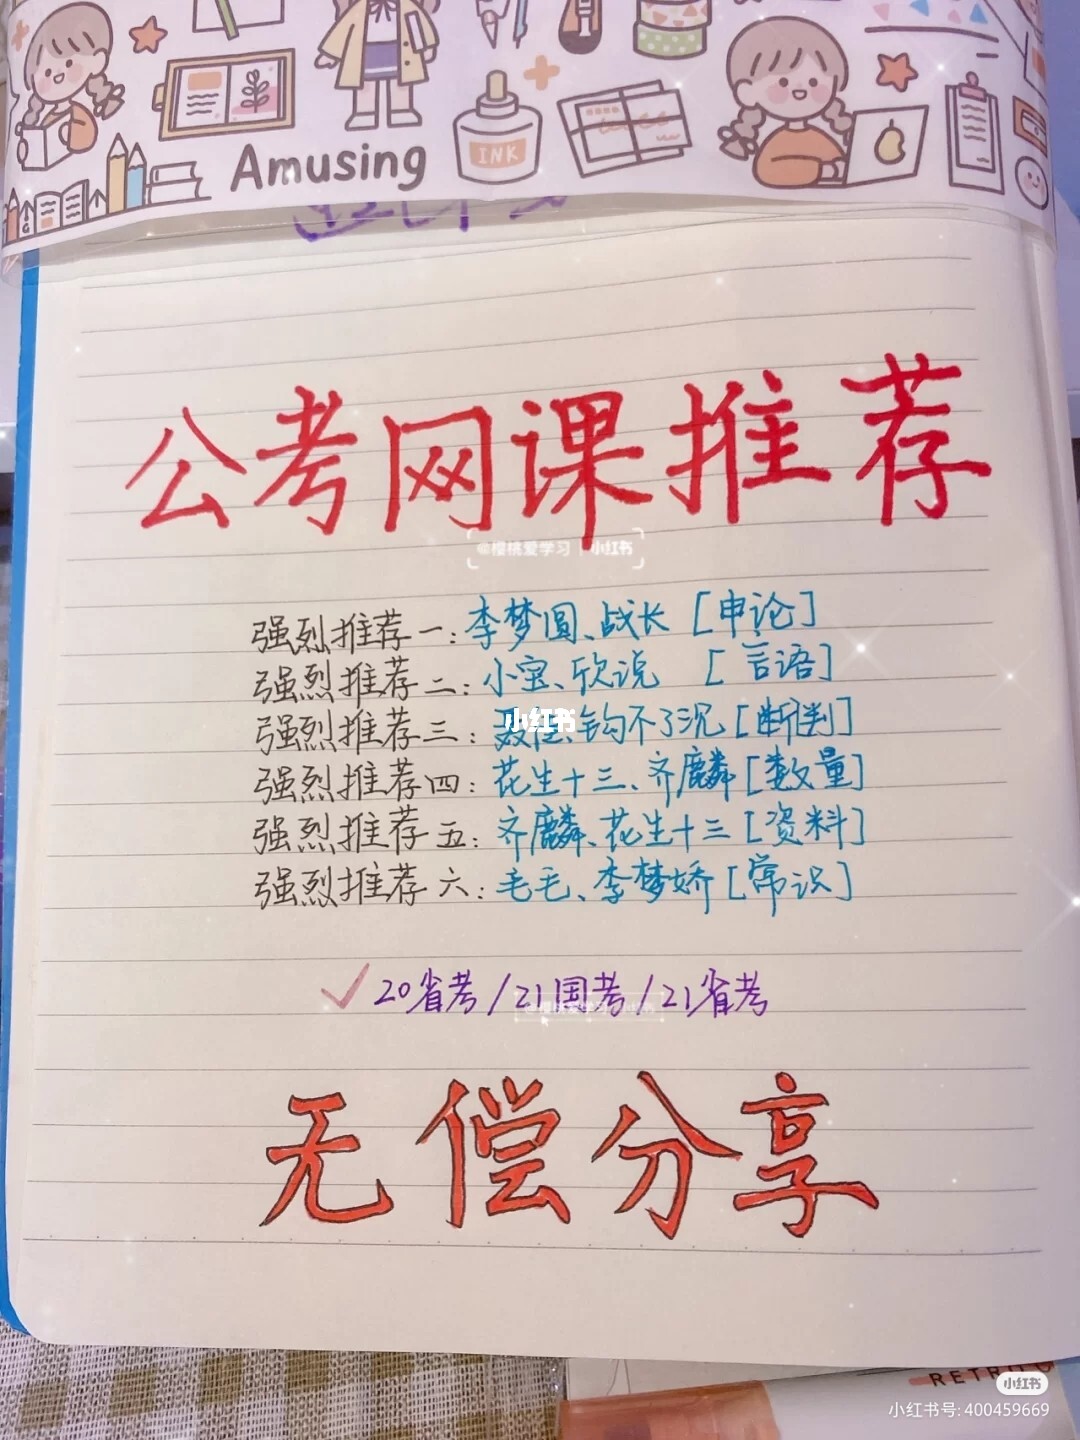 INK
Amusing
公考网课推荐
@樱桃爱学习 小红书
强烈推荐一:李梦圆、战长[申论]
强烈推荐二:小宝、欣说 [言语]
强烈推荐三:聂佳、钩不了沉[断判]
小红书
强烈推荐四:花生十三、齐麟[数量]
强烈推荐五:齐麟、花生十三[资料]
强烈推荐六:毛毛、李梦娇[常识]
20省考/21国考/21省考
无偿分享
RETRO
小红书
小红书号:400459669